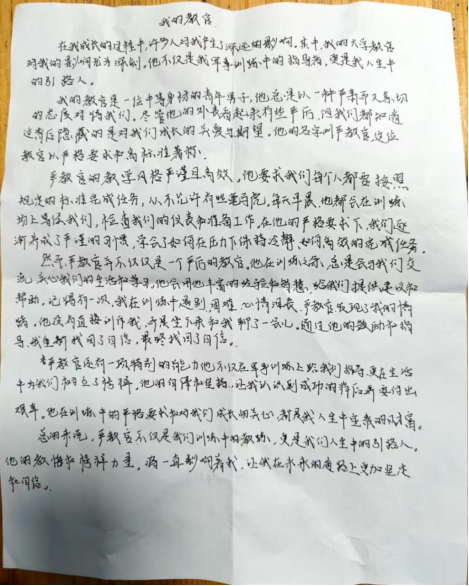 我的教官
在我成长的过程中,许多人对我产生了深远的影响。其中,我的大学教官
对我的影响尤为深刻。他不仅是我军事训练中的指导者,更是我人生中
的引路人。
我的教官是一位中等身材的青年男子,他总是以一种严肃而又亲切
的态度对待我们。尽管他的外表看起来有些严厉,但我们都知道
这背后隐藏的是对我们成长的关爱与期望。他的名字叫严教官,这位
教官以严格要求和高标准著称。
严教官的教学风格严谨且高效。他要求我们每个人都要按照
规定的标准完成任务,从不允许有丝毫马虎。每天早晨,他都会在训练
场上等候我们,检查我们的仪表和准备工作。在他的严格要求下,我们逐
渐养成了严谨的习惯,学会了如何在压力下保持冷静,如何高效的完成任务。
然而,严教官并不仅仅是一个严厉的教官。他在训练之余,总是会与我们交
流,关心我们的生活和学习。他会用他丰富的经验和智慧,给我们提供建议和
帮助。记得有一次,我在训练中遇到困难,心情沮丧。严教官发现了我的情
绪,他没有直接训斥我,而是坐下来和我聊了一会儿。通过他的鼓励和指
导,我重新找回了自信,最终找回了自信。
严教官还有一项特别的能力,他不仅在军事训练上给我们指导,更在生活
中为我们树立了榜样。他的自律和坚持,让我认识到成功的背后需要付出
艰辛。他在训练中的严格要求和对我们成长的关心,都是我人生中宝贵的财富。
总的来说,严教官不仅是我们训练中的教练,更是我们人生中的引路人。
他的教悔和榜样力量,将一直影响着我,让我在未来的道路上更加坚定
和自信。